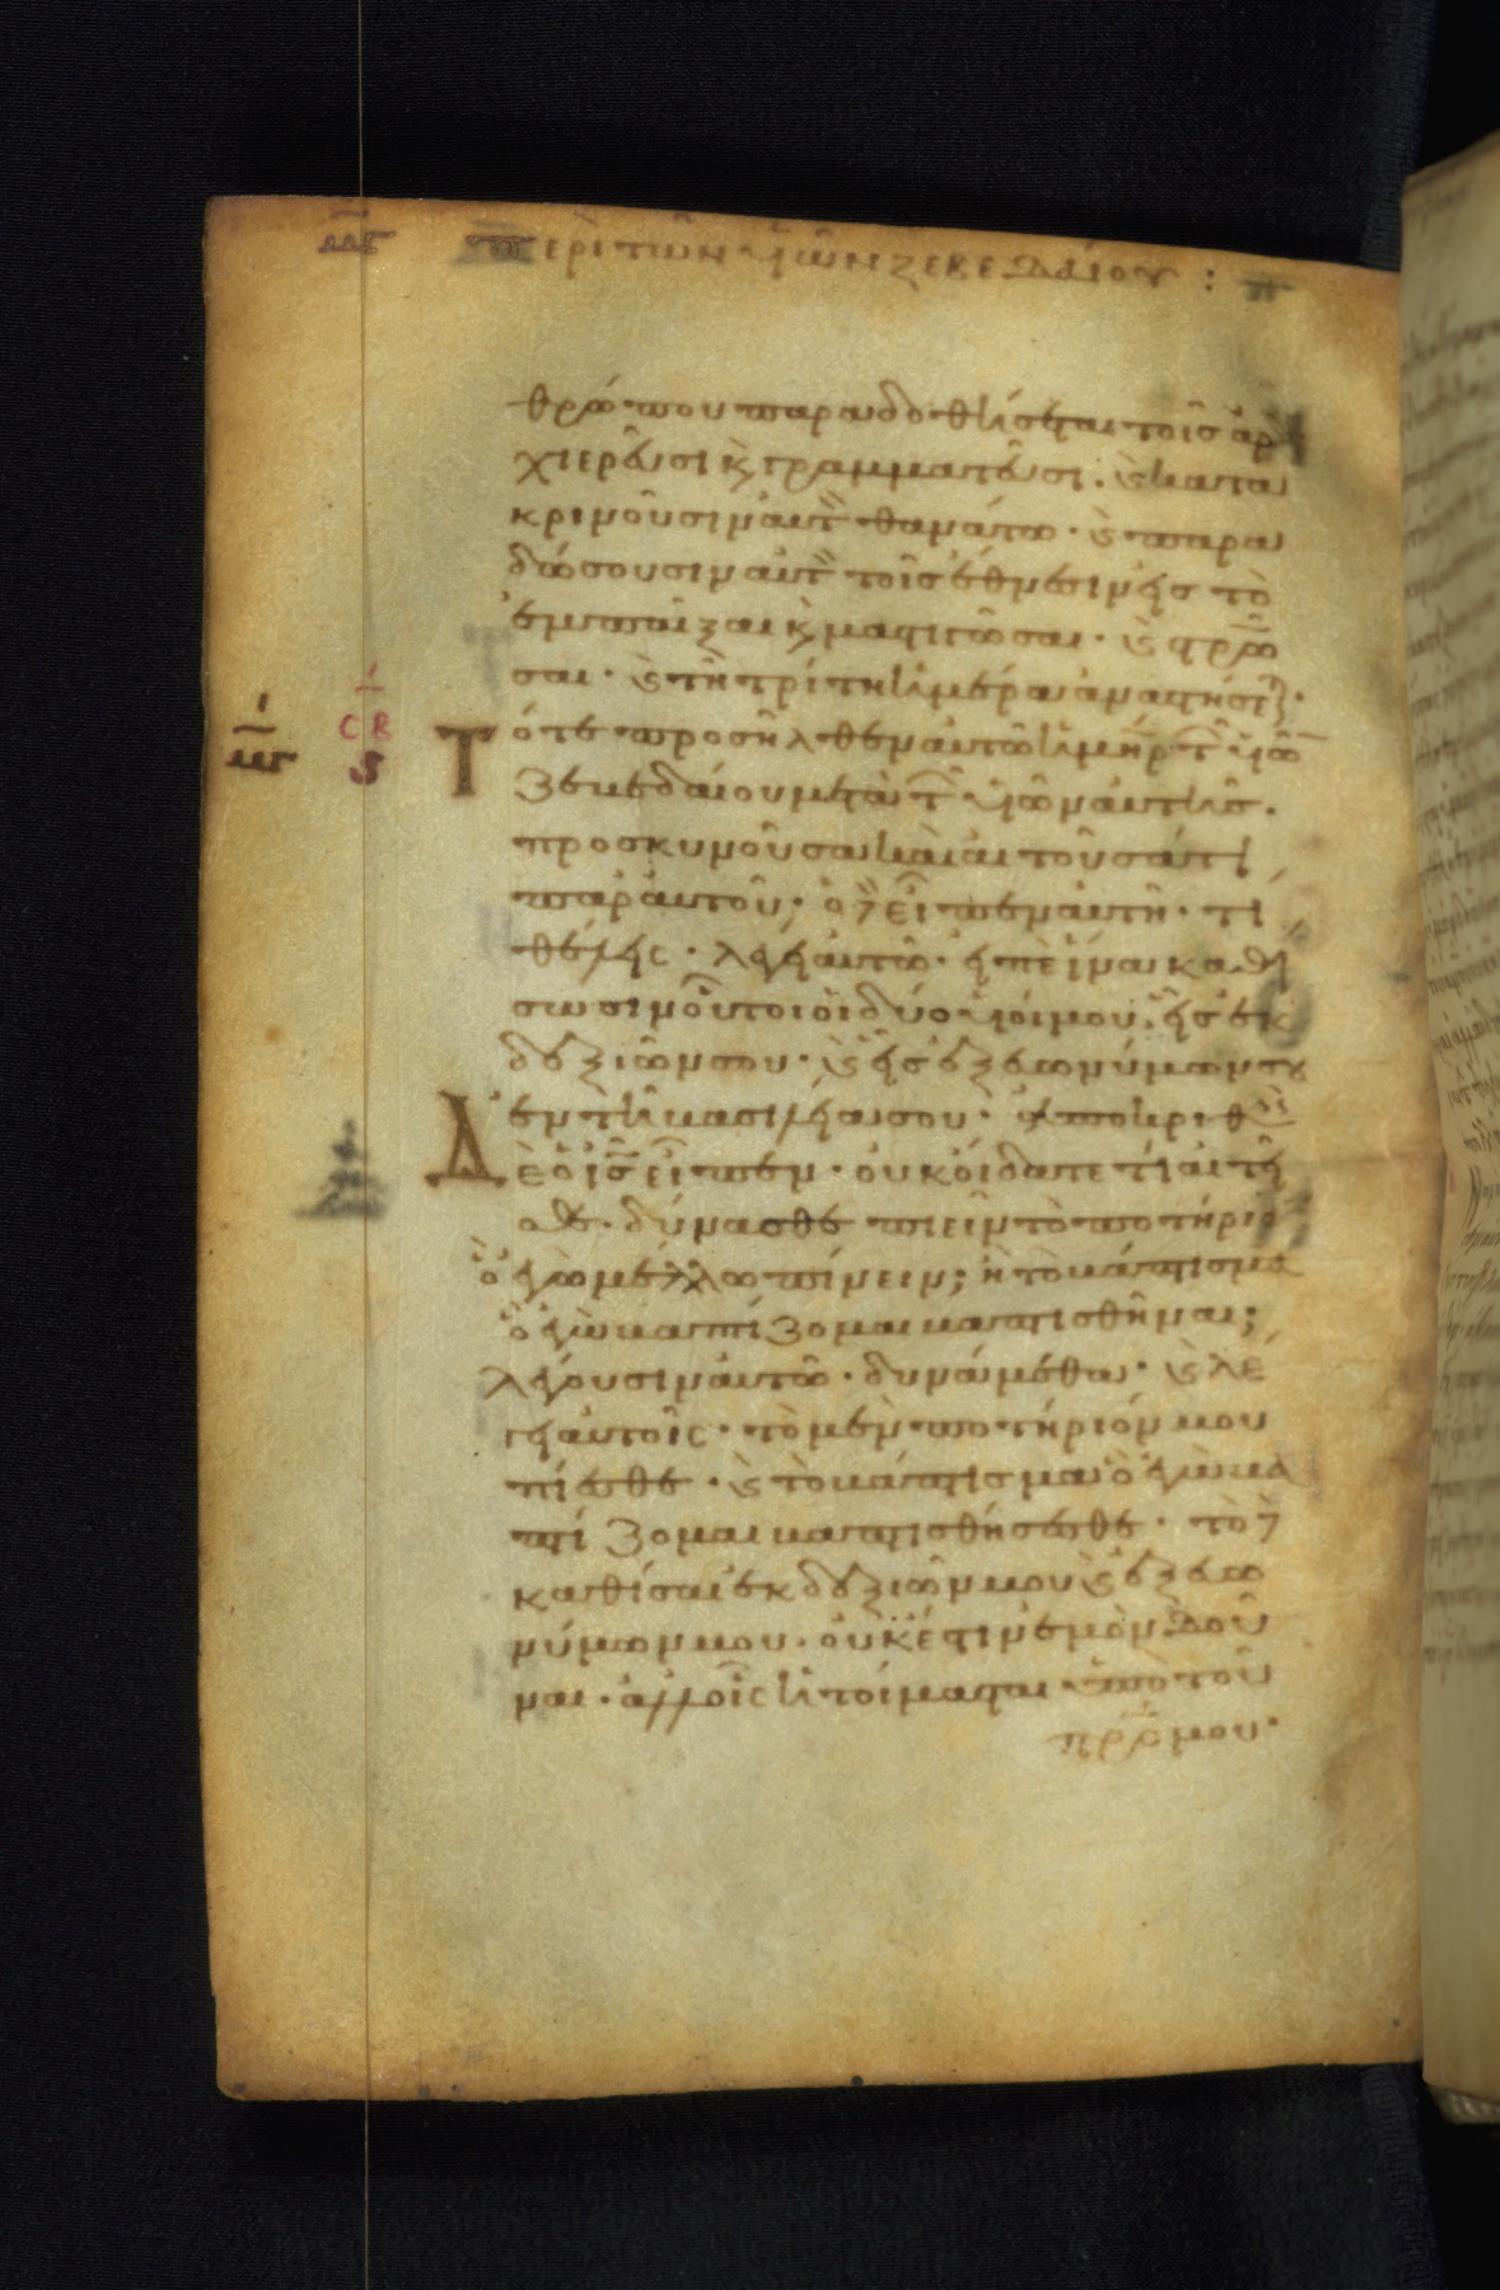 με περὶ τῶν υἱῶν ζεβεδαίου :
θρώπου παραδοθήσεται τοῖς ἀρ
χιερεῦσι κ̀ γραμματεῦσι· ϗ κατα
κρινοῦσιν αὐτ θανάτω· ϗ παρα
δώσουσιν αὐτ τοῖς ἔθνεσιν εἰς τὸ
ἐμπαῖξαι κ̀ μαστιγῶσαι· ϗ στρῶ
σαι· ϗ τῆ τρίτη ἡμέρα ἀναστήσετ·
Τότε προσῆλθεν αὐτῶ ἡ μηρ τ υἱῶ
ζεβεδαίου μετὰ τ υἱῶν αὐτῆς·
προσκυνοῦσα καὶ αἰτοῦσά τι
παρ αὐτοῦ· ὁ δὲ εἶπεν αὐτῆ· τί
θέλεις· λέγει αὐτῶ· εἰπὲ ἵνα καθί
σωσιν οὗτοι οἱ δύο υἱοί μου, εἷς ἐκ
δεξιῶν σου· ϗ εἷς ἐξ εὐωνύμων σου
ἐν τῆ βασιλεία σου· ἀποκριθεὶς
Δὲ ὁ ις εἶπεν· οὐκ οἴδατε τί αἰτεῖ
σθε· δύνασθε πιεῖν τὸ ποτήριο
ὃ ἐγὼ μέλλω πίνειν; ἢ τὸ βάπτισμα
ὃ ἐγὼ βαπτίζομαι βαπτισθῆναι;
λέγουσιν αὐτῶ· δυνάμεθα· ϗ λέ
γει αὐτοῖς· τὸ μὲν ποτήριόν μου
πίεσθε· ϗ τὸ βάπτισμα ὃ ἐγὼ βα
πτίζομαι βαπτισθήσεσθε· τὸ δὲ
καθίσαι ἐκ δεξιῶν μου ϗ ἐξ εὐω
νύμων μου· οὐκ ἔστιν ἐμὸν δοῦ
ναι· ἀλλοῖς ἡτοίμασται ὑπὸ τοῦ
πρς μου·